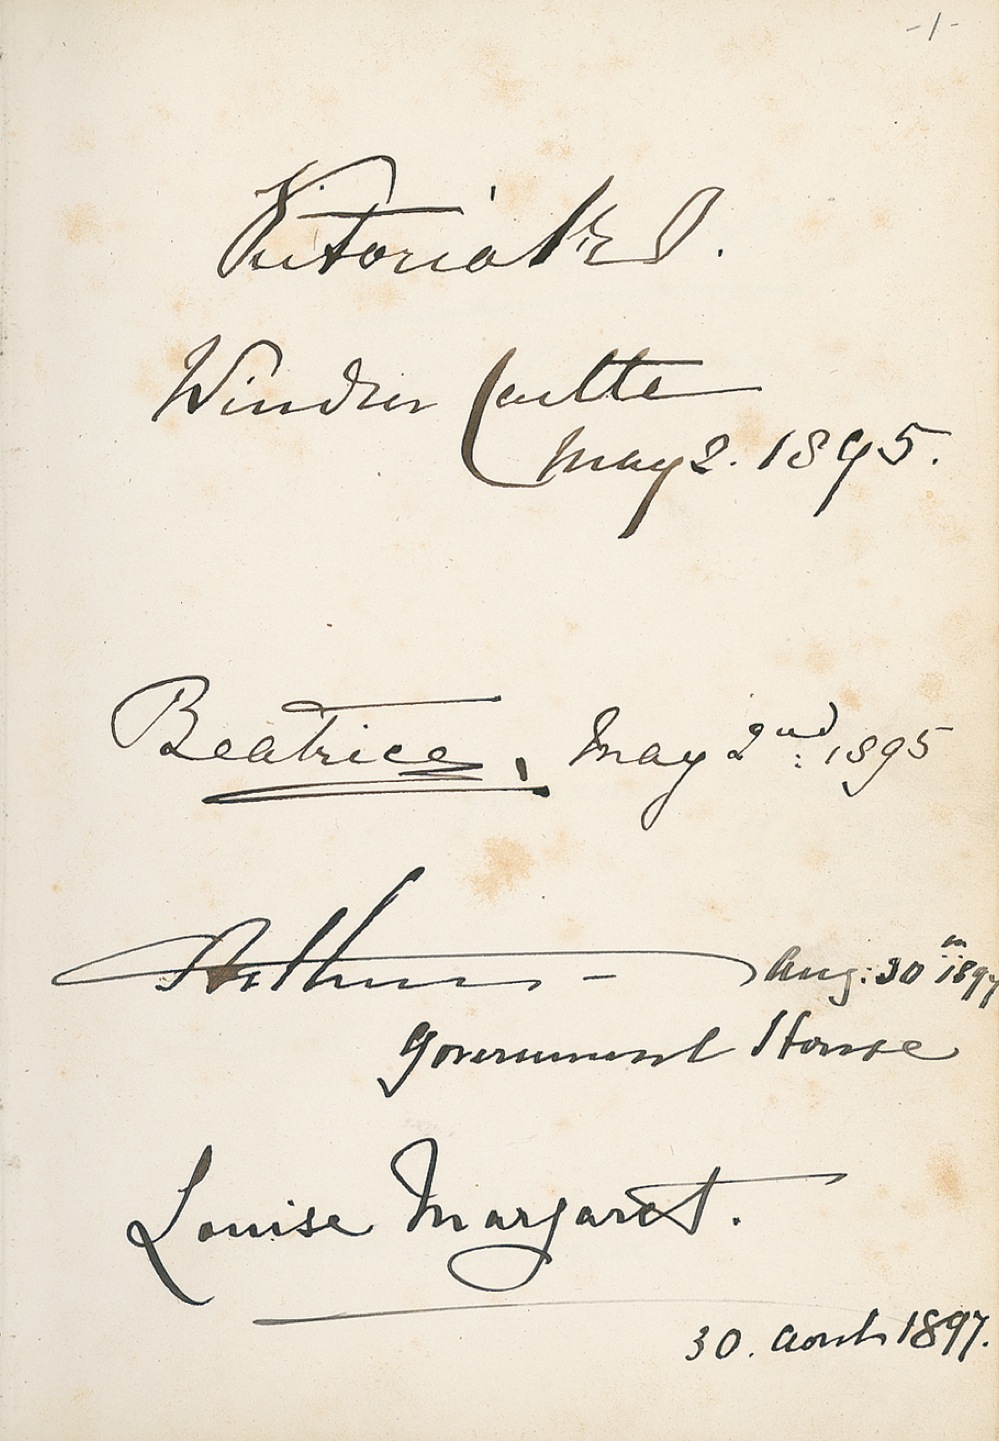 -1-
Victoria R I.
Windsor Castle
May 2. 1895.
Beatrice. May 2nd: 1895
Arthur — Aug: 30th 1897
Government House
Louise Margaret.
30. août 1897.